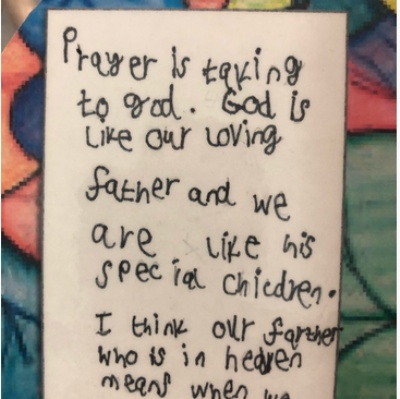 Prayer is taking
to god. God is
Like our loving
father and we
are like his
special chicdren.
I think our farther
who is in heaven
means when we